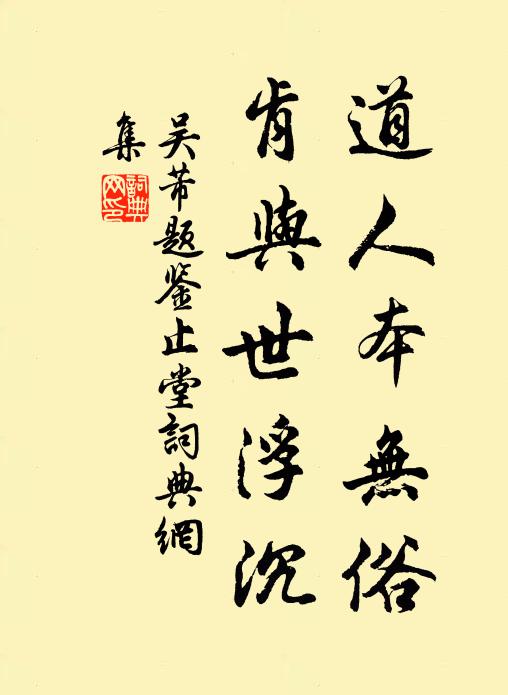 道人本無俗
肯與世浮沉
吴芾题鉴止堂詞典網
集
詞典網印